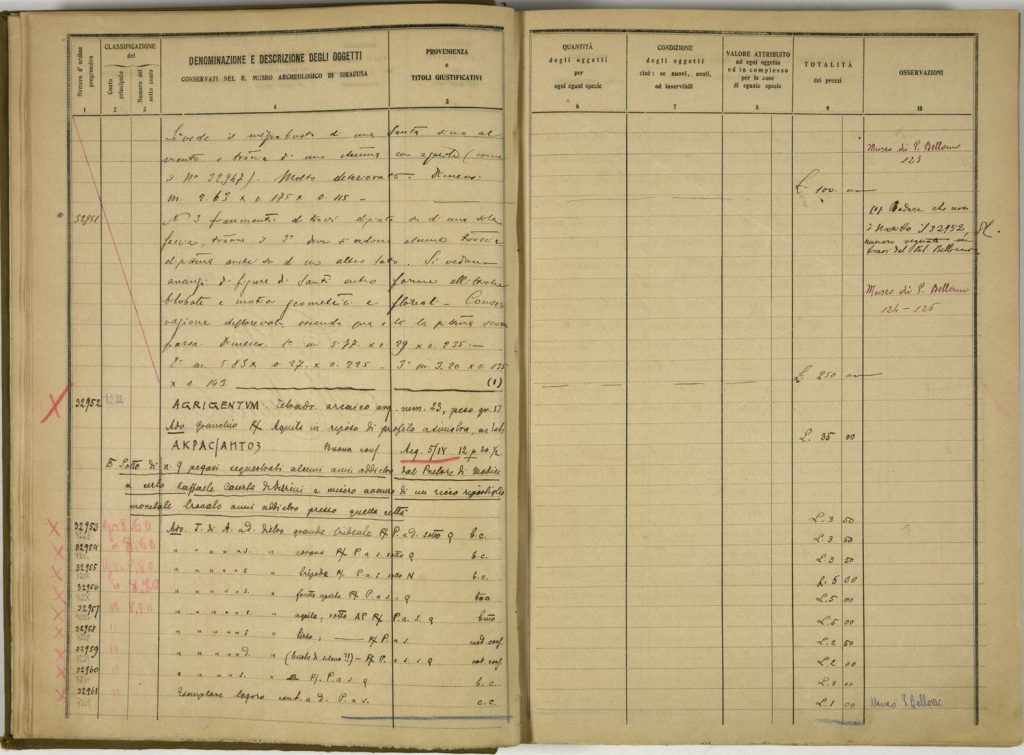 Numero d'ordine progressivo
CLASSIFICAZIONE
dei
Conto principale
Numero del sotto conto
DENOMINAZIONE E DESCRIZIONE DEGLI OGGETTI
CONSERVATI NEL R. MUSEO ARCHEOLOGICO DI SIRACUSA
PROVENIENZA
e
TITOLI GIUSTIFICATIVI
1 2 3 4 5
Si vede il busto di una Santa sino al
e traccia di una con aureola (come
il N° 32947). Molto deteriorato. Dimens:
m. 2.63 x 0.175 x 0.115 -
32951 N 3 frammenti di travi dipinte su di una sola
faccia, tranne il 3° dove si vedono alcune traccie
di pittura anche su di un altro lato. Si vedono
avanzi di figure di Santi entro forme ellittiche
bilobate e motivi geometrici e floreali - Conser
vazione deplorevole, essendo qua e là la pittura scom
parsa. Dimens. 1° m. 5.77 x 0.29 x 0.235 -
2° m. 5.83 x 0.27 x 0.225 - 3° m. 3.20 x 0.175
x 0.143. (1)
32952 AGRIGENTVM. Tetradr. arcaico arg. mm. 23, peso gr. 17.
Adv. granchio R/ Aquila in riposo di profilo a sinistra, ai lati
AKRAC/ANTOS Buona conf. Acq. 5/IX 12 p 30 ½
Lotto di n. 9 pegasi sequestrati alcuni anni addietro dal Pretore di Modica
a certo Raffaele e misero avanzo di un ricco ripostiglio
monetale trovato anni addietro presso quella città
32953 gr 8.60 Adv. T. di A. a d. dietro grande tridente R/ P. a d. sotto Q b.c.
32954 " 8.60 " " " " a s. " corona R/ P. a s. sotto Q b.c.
32955 8.80 " " " " a s. " R/ P. a s. sotto N b.c.
32956 " 8.20 " " " " a s. " R/ P. a s. Q
32957 8.20 " " " " a s. " aquila, sotto AP R/ P. a s. Q
32958 " " " " " a s. " tirso, — R/ P. a s
32959 " " " " " a d. " (busto di — R/ P. a s. s. Q
32960 " " " " " a s. " R/ P. a s. Q b.c.
32961 " Esemplare logoro cont. a d. P. a s. c.c.
QUANTITÀ
degli oggetti
per
ogni eguai specie
CONDIZIONE
degli oggetti
cioè: se nuovi, usati,
od inservibili
VALORE ATTRIBUITO
ad ogni oggetto
od in complesso
per le cose
di eguale specie
TOTALITÀ
dei prezzi
OSSERVAZIONI
6 7 8 9 10
Museo di P. Bellomo
123
£ 100. —
(1) Badare che non
è descritto il 32952,
numero segnato su
travi del Pal. Bellomo
Museo di P. Bellomo
124 - 126
£ 250 —
L. 35 00
L. 3 50
L. 3 50
L. 3 50
L. 5 00
L. 5 00
L. 5 00
L. 2 50
L. 2 00
L. 2 00
L. 1 00 Museo P. Bellomo